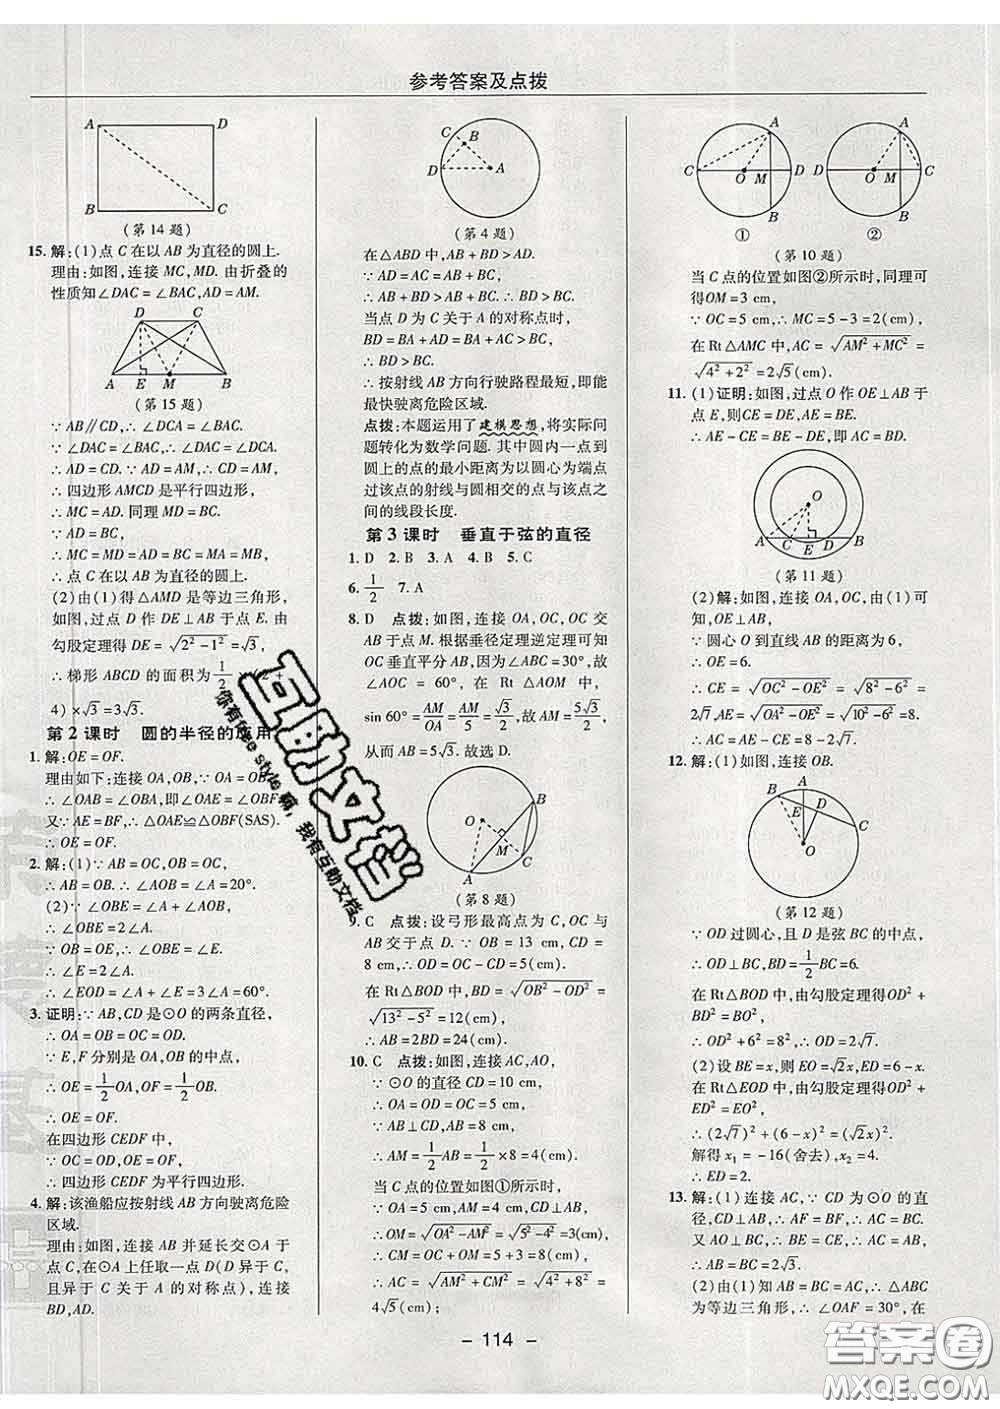 参考答案及点拨
A D
B C
(第 14 题)
15. 解:(1)点 C 在以 AB 为直径的圆上.
理由:如图,连接 MC,MD. 由折叠的
性质知∠DAC = ∠BAC,AD = AM.
D C
A E M B
(第 15 题)
∵ AB∥CD,∴ ∠DCA = ∠BAC.
∴ ∠DAC = ∠DCA.
∴ AD = CD. ∴ AD = AM,∴ CD = AM,
∴ 四边形 AMCD 是平行四边形,
∴ MC = AD. 同理 MD = BC.
∵ AD = BC,
∴ MC = MD = AD = BC = MB = MA.
∴ 点 C 在以 AB 为直径的圆上.
(2)由(1)得△AMD 是等边三角形,
如图,过点 D 作 DE⊥AB 于点 E. 由
勾股定理得 DE = √(2² − 1²) = √3,
∴ 梯形 ABCD 的面积为 1/2
4) × √3 = 3√3.
第 2 课时 圆的半径的应用
1. 解:OE = OF.
理由如下:连接 OA,OB,∵ OA = OB,
∴ ∠OAB = ∠OBA,即∠OAE = ∠OBF.
又∵ AE = BF,∴ △OAE≌△OBF(SAS).
∴ OE = OF.
2. 解:(1)∵ AB = OC,OB = OC,
∴ AB = OB. ∴ ∠AOB = ∠A = 20°.
(2)∵ ∠OBE = ∠A + ∠AOB,
∴ ∠OBE = 2∠A.
∵ OB = OE,∴ ∠OBE = ∠E.
∴ ∠E = 2∠A.
∴ ∠EOD = ∠A + ∠E = 3∠A = 60°.
3. 证明:∵ AB,CD 是⊙O 的两条直径,
∴ OA = OB = OC = OD.
∵ E,F 分别是 OA,OB 的中点,
∴ OE = 1/2 OA,OF = 1/2 OB.
∴ OE = OF.
在四边形 CEDF 中,
∵ OC = OD,OE = OF,
∴ 四边形 CEDF 为平行四边形.
4. 解:该渔船应按射线 AB 方向驶离危险
区域.
理由:如图,连接 AB 并延长交⊙A 于
点 C,在⊙A 上任取一点 D(D 异于 C,
且异于 C 关于 A 的对称点),连接
BD,AD.
C B
D A
(第 4 题)
在△ABD 中,AB + BD > AD.
∵ AD = AC = AB + BC,
∴ AB + BD > AB + BC. ∴ BD > BC.
当点 D 为 C 关于 A 的对称点时,
BD = BA + AD = BA + AC,
∴ BD > BC.
∴ 按射线 AB 方向行驶路程最短,即能
最快驶离危险区域.
点拨:本题运用了建模思想,将实际问
题转化为数学问题. 其中圆内一点到
圆上的点的最小距离为以圆心为端点
过该点的射线与圆相交的点与该点之
间的线段长度.
第 3 课时 垂直于弦的直径
1. D 2. B 3. A 4. B 5. C
6. 1/2 7. A
8. D 点拨:如图,连接 OA,OC,OC 交
AB 于点 M. 根据垂径定理逆定理可知
OC 垂直平分 AB,因为∠ABC = 30°,故
∠AOC = 60°,在 Rt△AOM 中,
sin 60° = AM/OA = AM/5 = √3/2,故 AM = 5√3/2,
从而 AB = 5√3. 故选 D.
O B
A C
(第 8 题)
9. C 点拨:设弓形最高点为 C,OC 与
AB 交于点 D. ∵ OB = 13 cm,CD =
8 cm,∴ OD = OC − CD = 5(cm).
在 Rt△BOD 中,BD = √(OB² − OD²) =
√(13² − 5²) = 12(cm).
∴ AB = 2BD = 24(cm).
10. C 点拨:如图,连接 AC,AO,
∵ ⊙O 的直径 CD = 10 cm,
∴ OA = OD = OC = 5 cm.
∵ AB⊥CD,AB = 8 cm,
∴ AM = 1/2 AB = 1/2 × 8 = 4(cm).
当 C 点的位置如图①所示时,
∵ OA = 5 cm,AM = 4 cm,CD⊥AB,
∴ OM = √(OA² − AM²) = √(5² − 4²) = 3(cm),
∴ CM = OC + OM = 5 + 3 = 8(cm).
∴ AC = √(AM² + CM²) = √(4² + 8²) =
4√5(cm);
A A
C O M D D O M C
B B
① ②
(第 10 题)
当 C 点的位置如图②所示时,同理可
得OM = 3 cm,
∵ OC = 5 cm,∴ MC = 5 − 3 = 2(cm),
在 Rt△AMC 中,AC = √(AM² + MC²) =
√(4² + 2²) = 2√5(cm).
11. (1)证明:如图,过点 O 作 OE⊥AB 于
点 E,则CE = DE,AE = BE.
∴ AE − CE = BE − DE,即 AC = BD.
O
A C E D B
(第 11 题)
(2)解:如图,连接 OA,OC,由(1)可
知,OE⊥AB,
∵ 圆心 O 到直线 AB 的距离为 6,
∴ OE = 6.
∴ CE = √(OC² − OE²) = √(8² − 6²) =
2√7,AE = √(OA² − OE²) = √(10² − 6²) = 8.
∴ AC = AE − CE = 8 − 2√7.
12. 解:(1)如图,连接 OB.
B A D C
E
O
(第 12 题)
∵ OD 过圆心,且 D 是弦 BC 的中点,
∴ OD⊥BC,BD = 1/2 BC = 6.
在 Rt△BOD 中,由勾股定理得OD² +
BD² = BO²,
∴ OD² + 6² = 8²,∴ OD = 2√7.
(2)设 BE = x,则 EO = √2x,ED = 6 − x.
在 Rt△EOD 中,由勾股定理得 OD² +
ED² = EO²,
∴ (2√7)² + (6 − x)² = (√2x)².
解得 x₁ = −16(舍去),x₂ = 4.
∴ ED = 2.
13. 解:(1)连接 AC,∵ CD 为⊙O 的直
径,CD⊥AB,∴ AF = BF,∴ AC = BC.
又 AO⊥BC,∴ BE = CE,∴ AB = AC,
∴ AB = BC = 2√3.
(2)由(1)知 AB = BC = AC,∴ △ABC
为等边三角形,∴ ∠OAF = 30°,在
– 114 –
互助文档
你有free style嘛,我有互助文档
答案圈
MXQE.COM